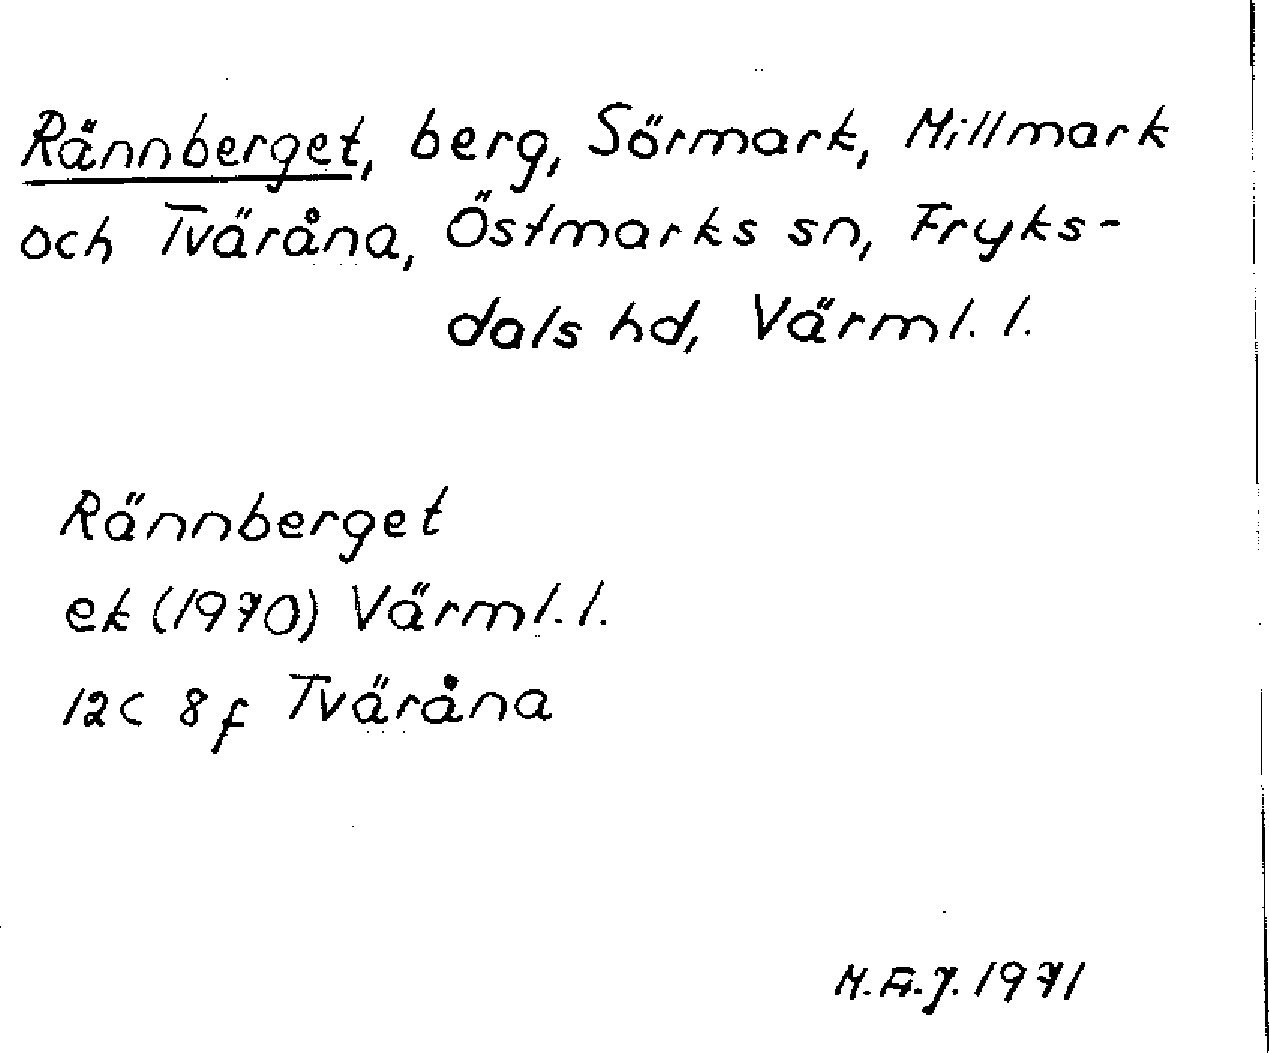 Rännberget, berg, Sörmark, Millmark
och Tväråna, Östmarks sn, Fryks-
dals hd, Värml. l.
Rännberget
ek (1970) Värml. l.
12C 8f Tväråna
M.A.J. 1971